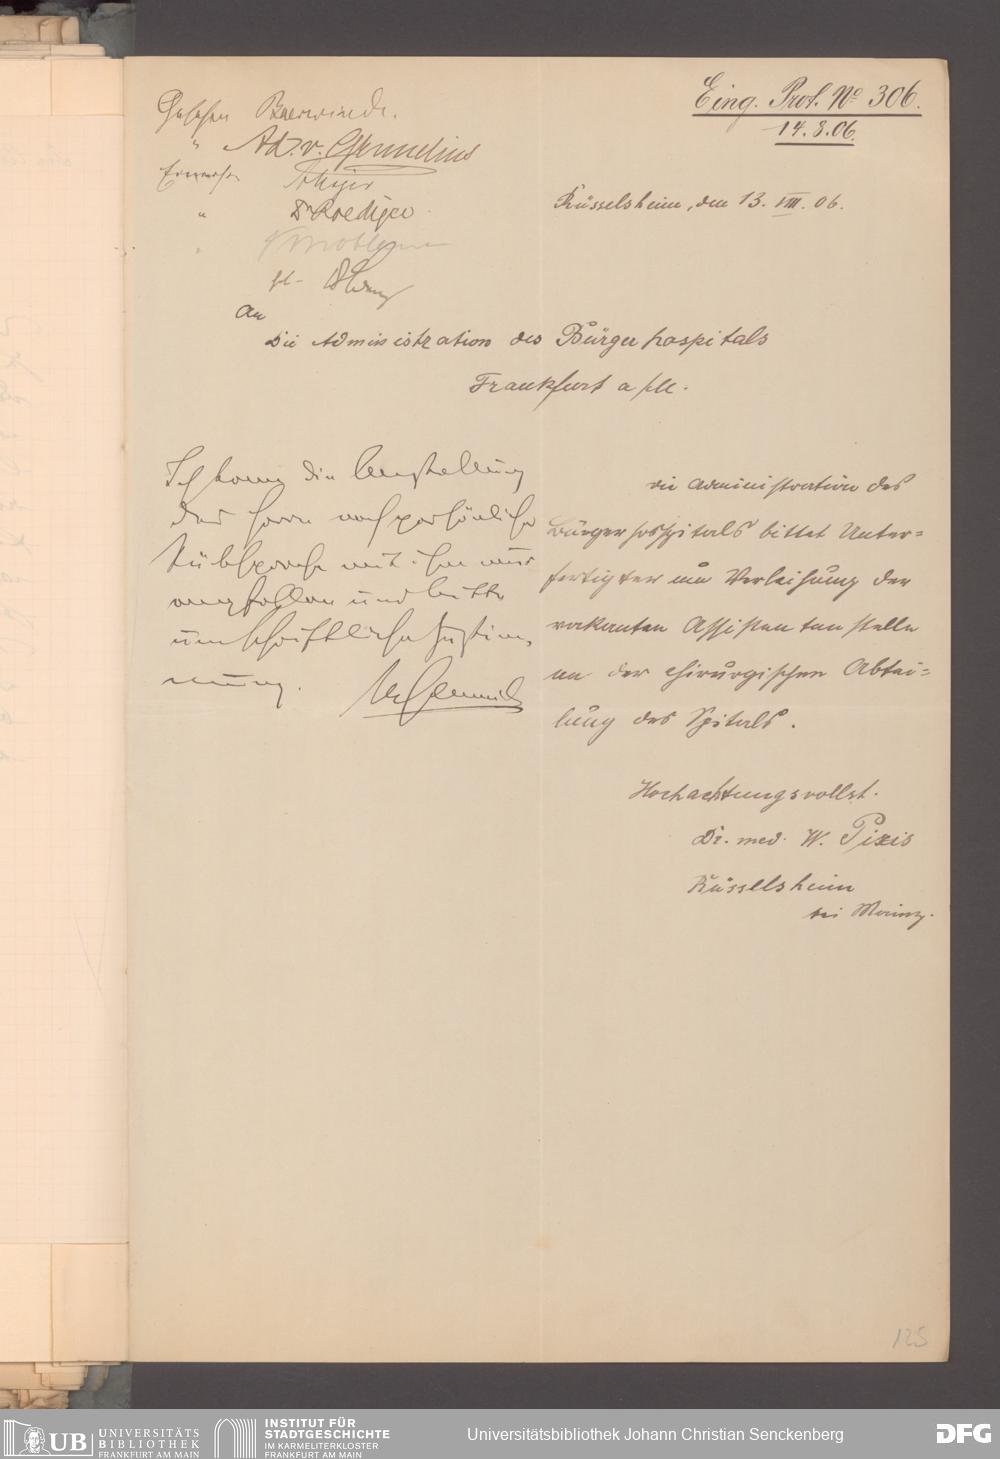 Eing. Prot. No 306.
14.8.06.
Gesehen Baerwindt.
" Ad. v. Grunelius
" Dr Roediger
Rüsselsheim, den 13. VIII. 06.
An
Die Administration des Bürgerhospitals
Frankfurt a/M.
Ich kann die Anstellung
des Herrn nach persönlicher
Rücksprache mit ihm nur
empfehlen und bitte
um schriftliche Zustim-
mung.
Die Administration des
Bürgerhospitals bittet Unter=
fertigter um Verleihung der
vakanten Assistentenstelle
an der chirurgischen Abtei=
lung des Spitals.
Hochachtungsvollst.
Dr. med. W. Pixis
Rüsselsheim
bei Mainz.
125
UB UNIVERSITÄTS
BIBLIOTHEK
FRANKFURT AM MAIN
INSTITUT FÜR
STADTGESCHICHTE
IM KARMELITERKLOSTER
FRANKFURT AM MAIN
Universitätsbibliothek Johann Christian Senckenberg
DFG